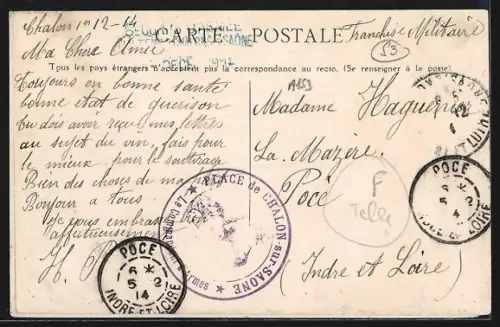 CARTE POSTALE
Tous les pays étrangers n'acceptent pas la correspondance au recto. (Se renseigner à la poste).
Chalon 1er 12-14
Ma Chere Aimée
Toujours en bonne santé
bonne etat de guerison
Tu dois avoir reçu mes lettres
au sujet du vin, fais pour
le mieux pour le soutirage
Bien des choses de ma
Bonjour a tous
Je vous embrasse bien
affectueusement
H.
Franchise Militaire
53
A153
Madame Haguenier
La Mazère
Pocé
(Indre et Loire)
F
Telle
PLACE de CHALON-sur-SAONE
POCE
6 *
5 - 12
14
INDRE ET LOIRE
POCE
6 *
5 - 12
14
INDRE ET LOIRE